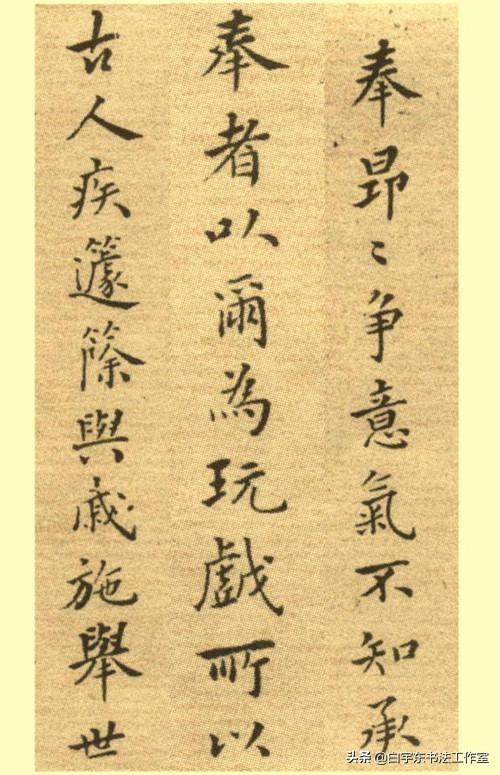 奉昂〻争意氣不知承
奉者以爾為玩戲所以
古人疾籧篨與戚施舉世
头条 @白宇东书法工作室